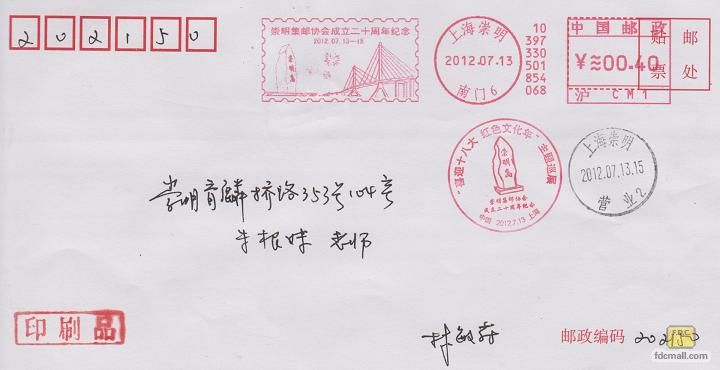 202150
崇明集邮协会成立二十周年纪念
2012.07.13-15
崇明岛
上海崇明
2012.07.13
南门6
10
397
330
501
854
068
中国邮政
¥≈00.40
沪 CM1
贴票
邮处
"喜迎十八大 红色文化年"主题巡展
崇明岛
崇明集邮协会
成立二十周年纪念
中国 2012.7.13 上海
上海崇明
2012.07.13.15
营业2
崇明育麟桥路353号104号
朱根妹 老师
印刷品
邮政编码 202150
fdcmall.com